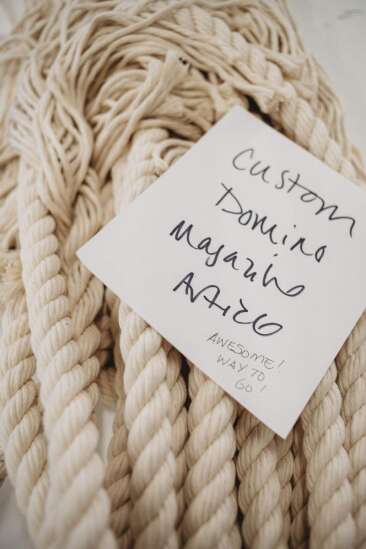 Custom
Domino
Magazine
Article
AWESOME!
WAY TO
GO!